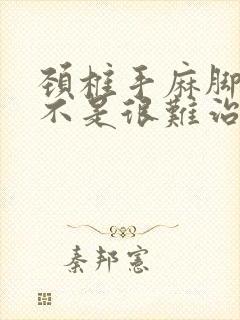 頚椎手麻脚
不是很難治
秦邦憲